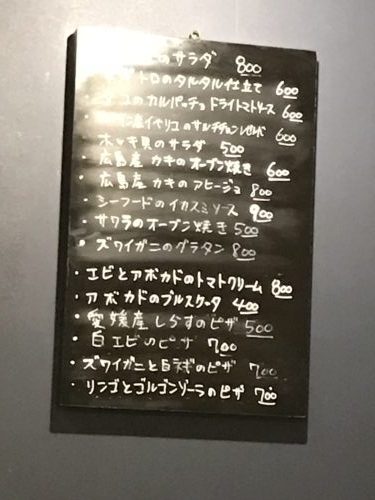 のサラダ 800
トロのタルタル仕立て 600
コのカルパッチョ ドライトマトソース 600
産イベリコのサルチチョン 600
ホッキ貝のサラダ 500
・広島産 カキのオーブン焼き 600
・広島産 カキのアヒージョ 800
・シーフードのイカスミソース 900
・サワラのオーブン焼き 500
・ズワイガニのグラタン 800
・エビとアボカドのトマトクリーム 800
・アボカドのブルスケッタ 400
・愛媛産しらすのピザ 500
・白エビのピザ 700
・ズワイガニと白ネギのピザ 700
・リンゴとゴルゴンゾーラのピザ 700